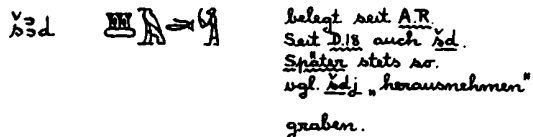 šꜣd 𓆷𓅓𓂧𓀜 belegt seit A.R.
Seit D.18 auch šd.
Später stets so.
vgl. šdj „herausnehmen"
graben.